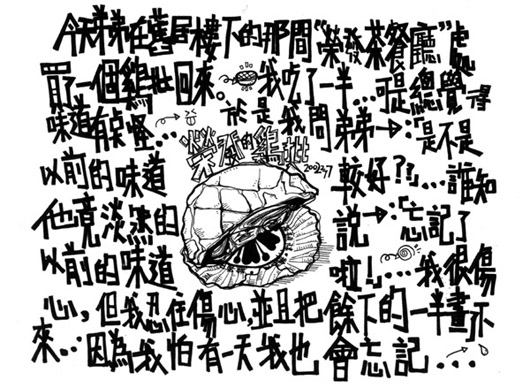 今天弟弟在舊居樓下的那間"榮發茶餐廳"處
買了一個鷄批回來。我吃了一半...可是總覺得
味道有点怪...→ 於是我問弟弟→:"是不是
榮發的鷄批
以前的味道 較好??"...誰知
他竟淡然的 說→:"忘記了
以前的味道 啦!"...我很傷
心,但我忍住傷心,並且把餘下的一半畫下
來...因為我怕有一天我也會忘記...